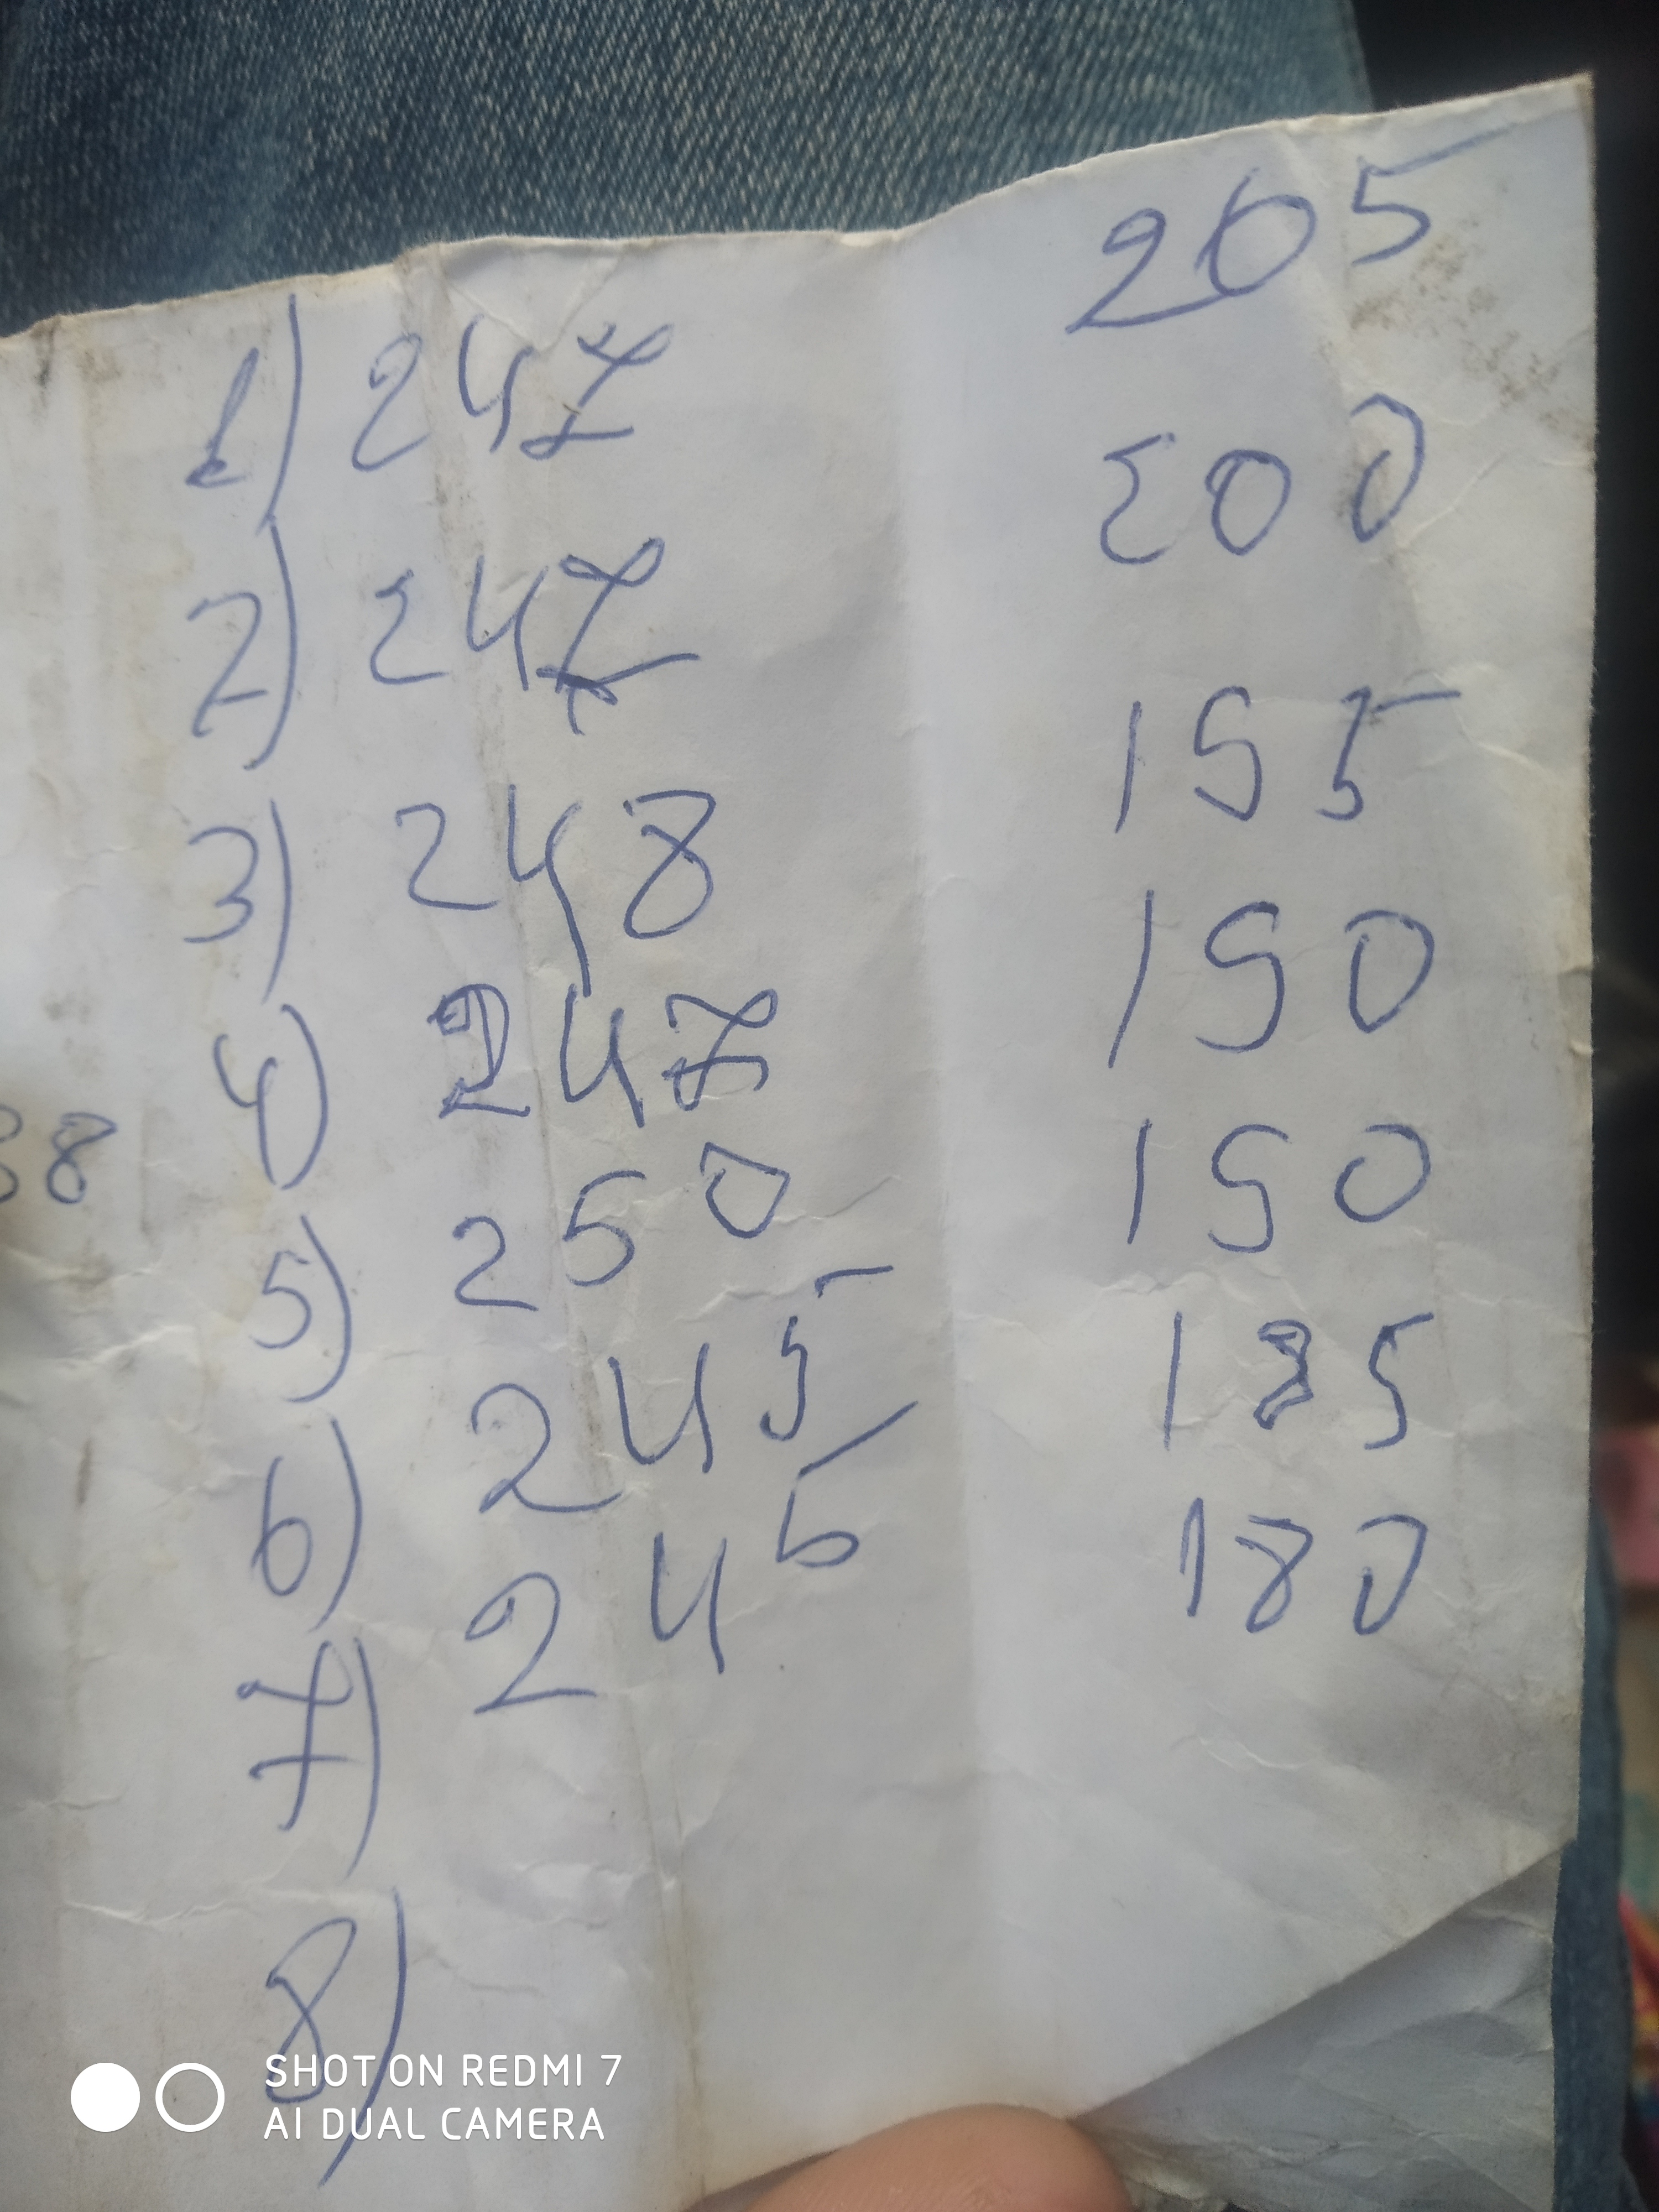 1) 247 205
2) 247 200
3) 248 195
4) 247 190
5) 250 190
6) 245 185
7) 245 180
8)
SHOT ON REDMI 7
AI DUAL CAMERA